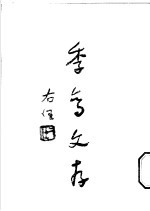 季鸞文存
右任